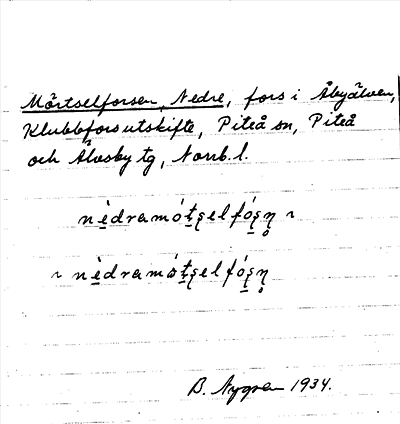 Mörtselforsen, Nedre, fors i Åbyälven,
Klubbforsutskifte, Piteå sn, Piteå
och Älvsby tg, Norrb. l.
nèdramóṭʂelfóʂṇ ~
~ nèdramóṭʂelfóʂṇ
B. Nygren 1934.